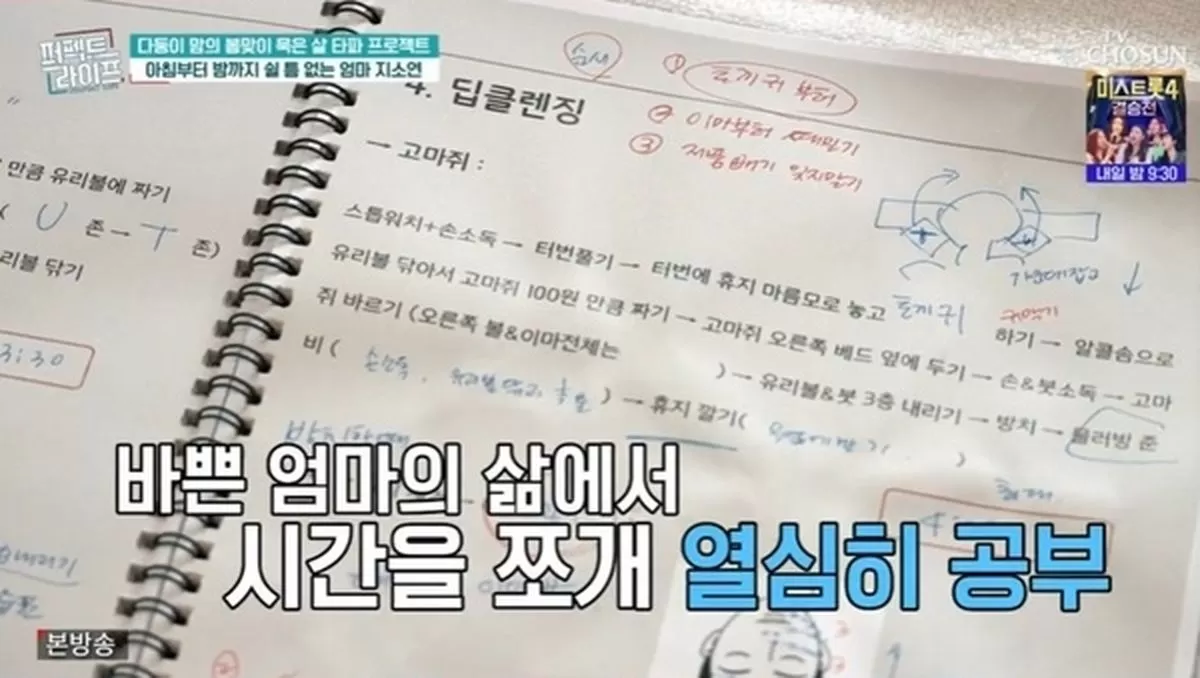 퍼펙트 라이프
다둥이 맘의 볼맞이 묵은 살 타파 프로젝트
아침부터 밤까지 쉴 틈 없는 엄마 지소연
TV CHOSUN
미스트롯4
결승전
내일 밤 9:30
만큼 유리볼에 짜기
( U 존 → T 존)
리볼 닦기
3:30
4. 딥클렌징
① 토끼귀 부터
② 이마부터
③ 제품빼기 잊지말기
→ 고마쥐 :
스톱워치+손소독 → 터번풀기 → 터번에 휴지 마름모로 놓고 토끼귀 하기 → 알콜솜으로
유리볼 닦아서 고마쥐 100원 만큼 짜기 → 고마쥐 오른쪽 베드 옆에 두기 → 손&붓소독 → 고마
쥐 바르기 (오른쪽 볼&이마전체는 ) → 유리볼&붓 3층 내리기 → 방치 → 물러방 준
비 ( 손소독, ) → 휴지 깔기( )
바쁜 엄마의 삶에서
시간을 쪼개 열심히 공부
본방송